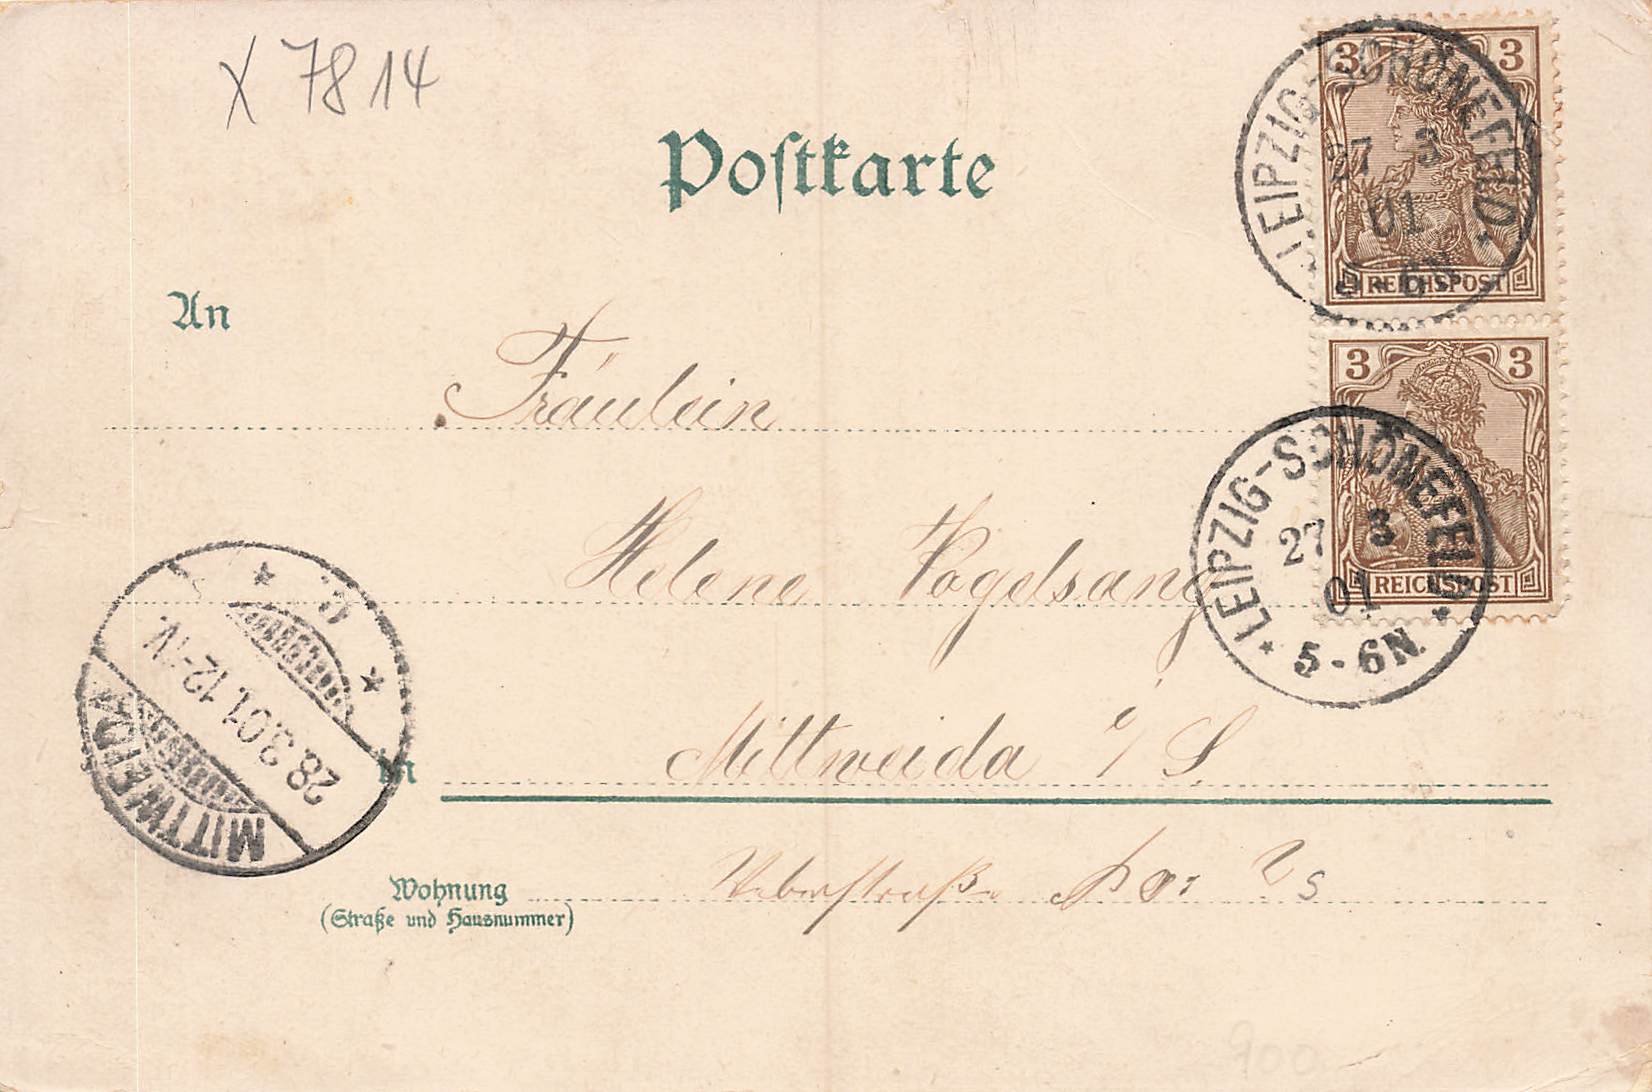 X 7814
Postkarte
3 3
LEIPZIG-SCHÖNEFELD
27 3
01
5-6N.
REICHSPOST
An
Fräulein
3 3
LEIPZIG-SCHÖNEFELD
27 3
01
5-6N.
REICHSPOST
Helene Vogelsang
MITTWEIDA
28.3.01.12-1V.
in
Mittweida i/S.
Wohnung
(Straße und Hausnummer)
Weberstraße
900